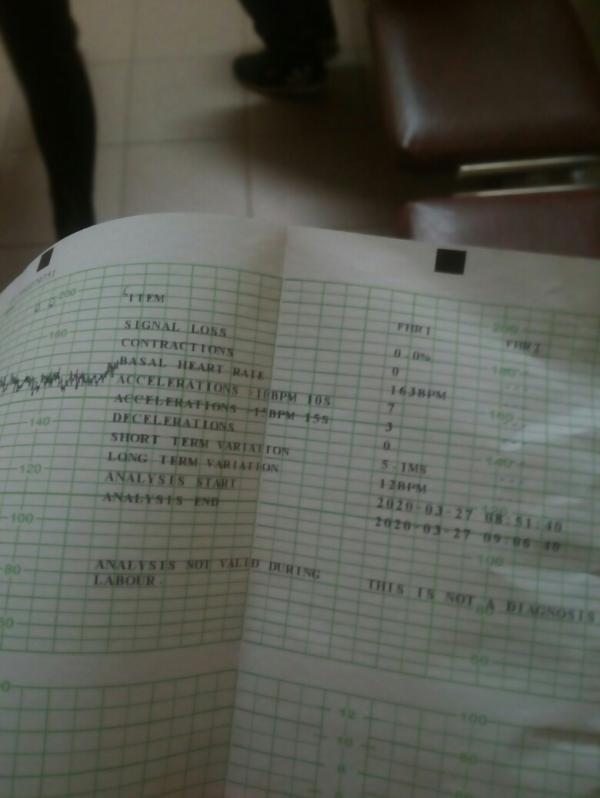 ITEM FHR1 FHR2
SIGNAL LOSS 0.0%
CONTRACTIONS 0
BASAL HEART RATE 163BPM
ACCELERATIONS >10BPM 10S 7
ACCELERATIONS >15BPM 15S 3
DECELERATIONS 0
SHORT TERM VARIATION 5.1MS
LONG TERM VARIATION 12BPM
ANALYSIS START 2020-03-27 08:51:40
ANALYSIS END 2020-03-27 09:06:40
ANALYSIS NOT VALID DURING
LABOUR. THIS IS NOT A DIAGNOSIS
200
180
140
120
100
80
60
200
180
160
140
100
80
60
12
10
8
100
80
60